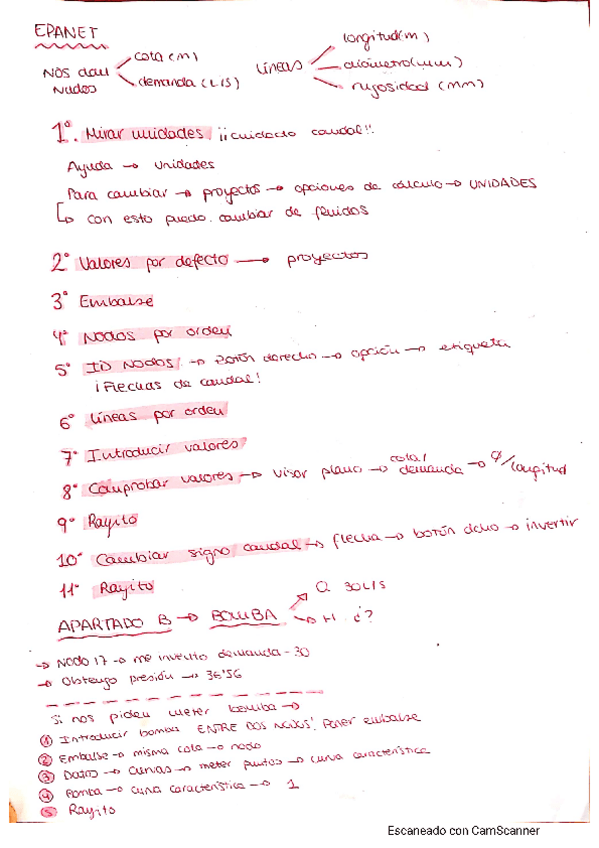 EPANET
NOS dan Nudos
cota (m)
demanda (L/S)
Líneas
longitud (m)
diámetro (mm)
rugosidad (mm)
1º. Mirar unidades ¡¡cuidado caudal!!
Ayuda → unidades
Para cambiar → proyectos → opciones de cálculo → UNIDADES
↳ con esto puedo cambiar de fluidos
2º Valores por defecto → proyectos
3º Embalse
4º Nodos por orden
5º ID NODOS → Botón derecho → opción → etiqueta
¡Flechas de caudal!
6º Líneas por orden
7º Introducir valores
8º Comprobar valores → visor plano → cota/demanda → φ/longitud
9º Rayito
10º Cambiar signo caudal → flecha → botón dcho → invertir
11º Rayito
APARTADO B → BOMBA
Q 30 L/S
H ¿?
→ Nodo 17 → me invento demanda - 30
→ Obtengo presión → 36'56
Si nos piden meter bomba →
① Introducir bomba ENTRE DOS NUDOS! Poner embalse
② Embalse → misma cota → nodo
③ Datos → Curvas → meter puntos → curva característica
④ Bomba → curva característica → 1
⑤ Rayito
Escaneado con CamScanner